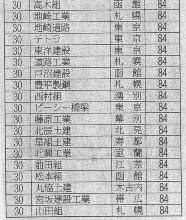 30 高木組 函館 84
30 地崎工業 札幌 84
30 地崎道路 東京 84
30 テトラ 東京 84
30 東洋建設 東京 84
30 道路工業 札幌 84
30 戸沼建設 函館 84
30 豊平製鋼 札幌 84
30 西村組 湧別 84
30 ピーシー橋梁 東京 84
30 藤原工業 幕別 84
30 北辰土建 北見 84
30 星組土建 寿都 84
30 北興工業 室蘭 84
30 前田組 84
30 松本組 函館 84
30 丸協土建 木古内 84
30 宮坂建設工業 帯広 84
30 山田組 札幌 84